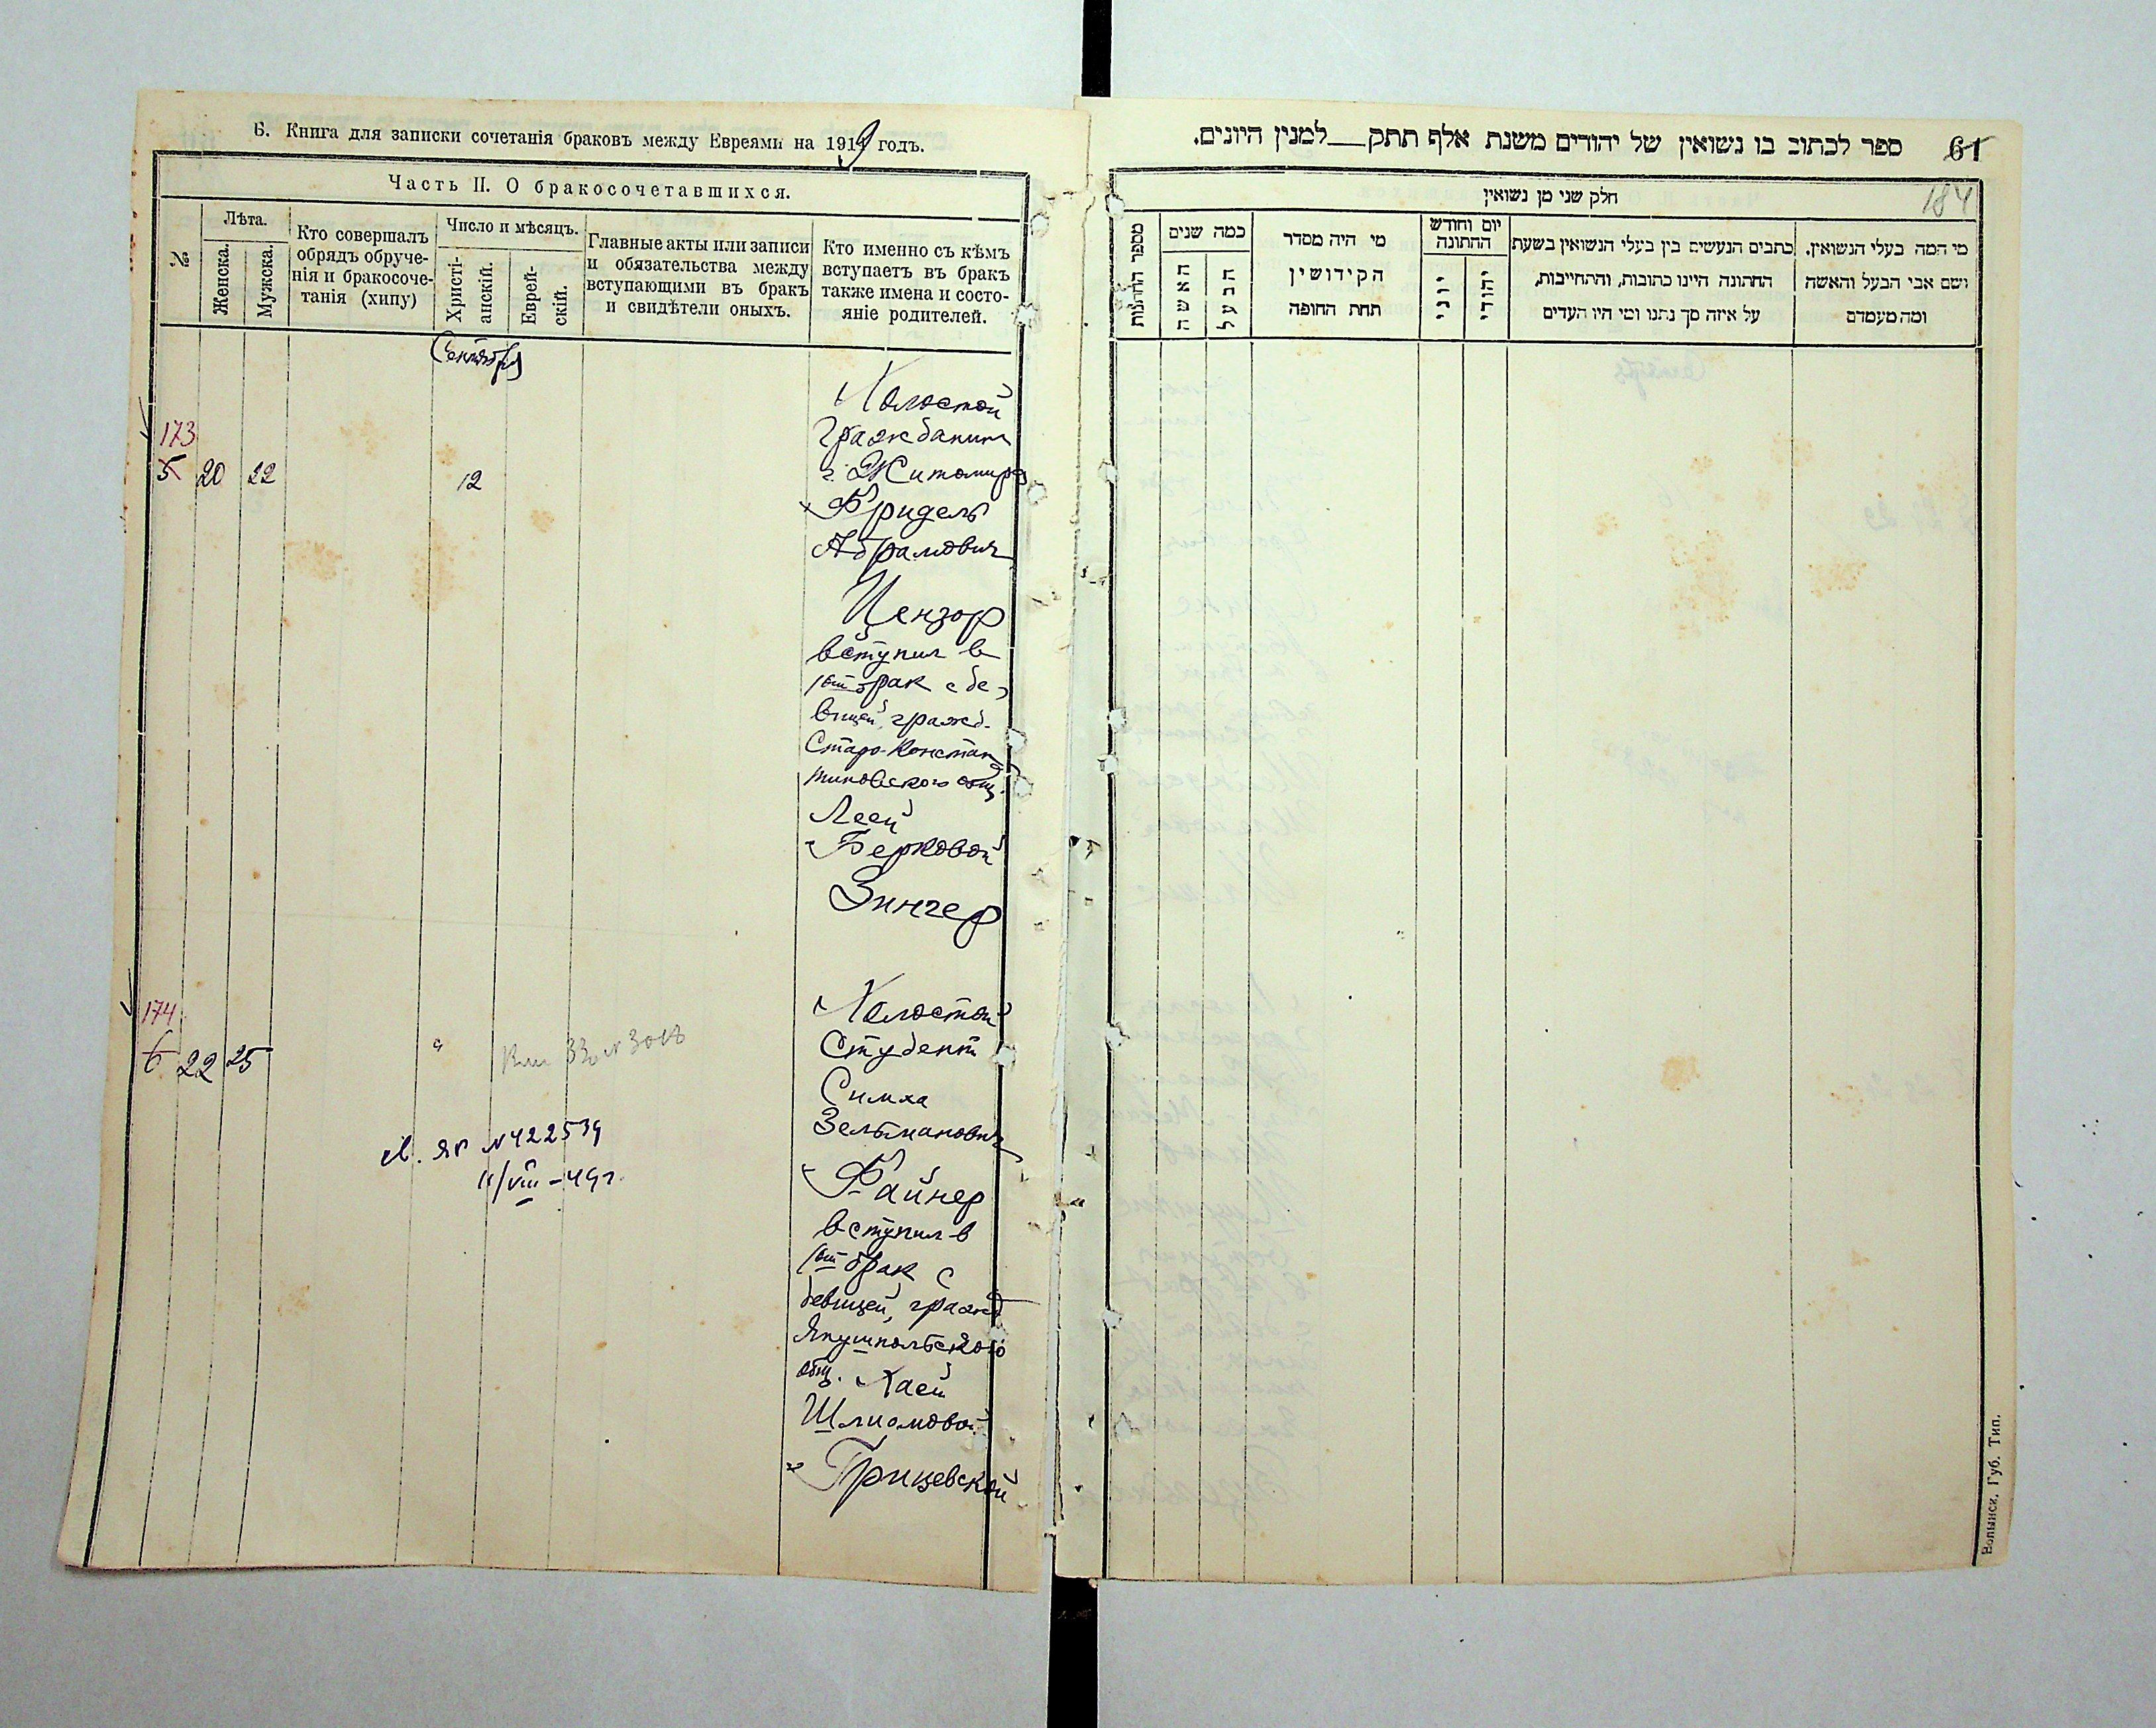 Б. Книга для записки сочетанія браковъ между Евреями на 1919 годъ.
Часть II. О бракосочетавшихся.
№
Лѣта.
Женска.
Мужска.
Кто совершалъ
обрядъ обруче-
нія и бракосоче-
танія (хипу)
Число и мѣсяцъ.
Христі-
анскій.
Еврей-
скій.
Главные акты или записи
и обязательства между
вступающими въ бракъ
и свидѣтели оныхъ.
Кто именно съ кѣмъ
вступаетъ въ бракъ
также имена и состо-
яніе родителей.
Сентября
173
5 20 22 12
Холостой
гражданин
г. Житомира
Фридель
Абрамович
Цензор
вступил в
1ый брак с де-
вицей, гражд.
Старо-Констан
тиновского общ.
Леей
Берковой
Зингер
174
6 22 25 "
Холостой
Студент
Симха
Зельманович
Файнер
вступил в
1ый брак с
девицей, гражд
Янушпольского
общ. Хаей
Шлиомовой
Грицевской
ЯР № 422539
11/VIII-49г.
ספר לכתוב בו נשואין של יהודים משנת אלף תתק___למנין היונים.
61
184
חלק שני מן נשואין
מספר החתונות
כמה שנים
האשה
הבעל
מי היה מסדר
הקידושין
תחת החופה
יום וחודש
החתונה
יוני
יהודי
כתבים הנעשים בין בעלי הנשואין בשעת
החתונה היינו כתובות, והתחייבות,
על איזה סך נתנו ומי היו העדים
מי המה בעלי הנשואין,
ושם אבי הבעל והאשה
ומה מעמדם
Волынск. Губ. Тип.